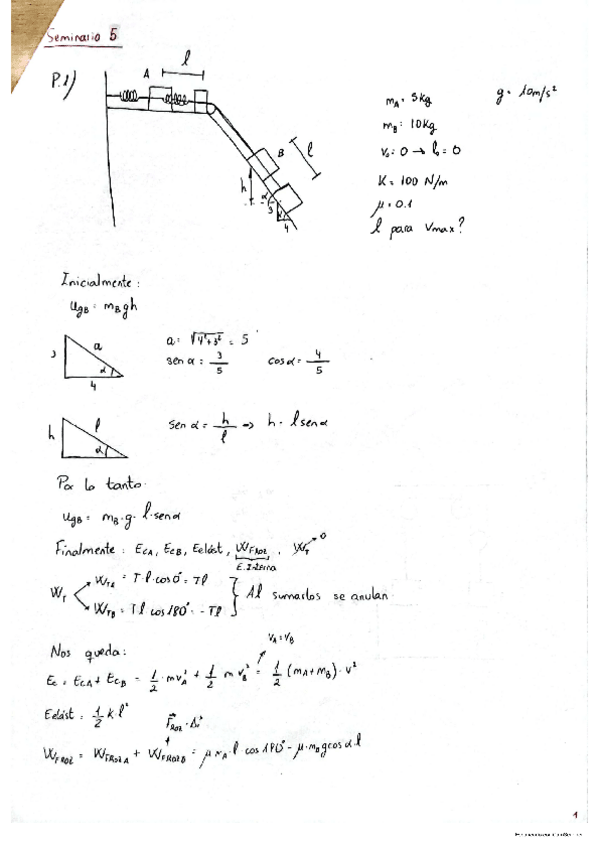 Seminario 5
P.1)
A
l
B
l
h
α
3
4
m_A = 5kg
g = 10m/s²
m_B = 10kg
v₀ = 0 → l₀ = 0
K = 100 N/m
μ = 0.1
l para vmax?
Inicialmente:
U_gB = m_B g h
3
a
α
4
a = √4²+3² = 5
sen α = 3/5
cos α = 4/5
h
l
α
sen α = h/l => h = l sen α
Por lo tanto:
U_gB = m_B · g · l · sen α
Finalmente: E_CA, E_CB, Eelást, W_FROZ, W_T → 0
E. Interna
W_T
W_TA = T · l · cos 0° = Tl
W_TB = T l cos 180° = -Tl
Al sumarlos se anulan
Nos queda:
v_A = v_B
E_C = E_CA + E_CB = 1/2 · m v_A² + 1/2 m v_B² = 1/2 (m_A + m_B) · v²
Eelást = 1/2 K l²
F_ROZ · Δr
W_FROZ = W_FROZA + W_FROZB = μ N_A · l cos 180° - μ · m_B g cos α · l
1